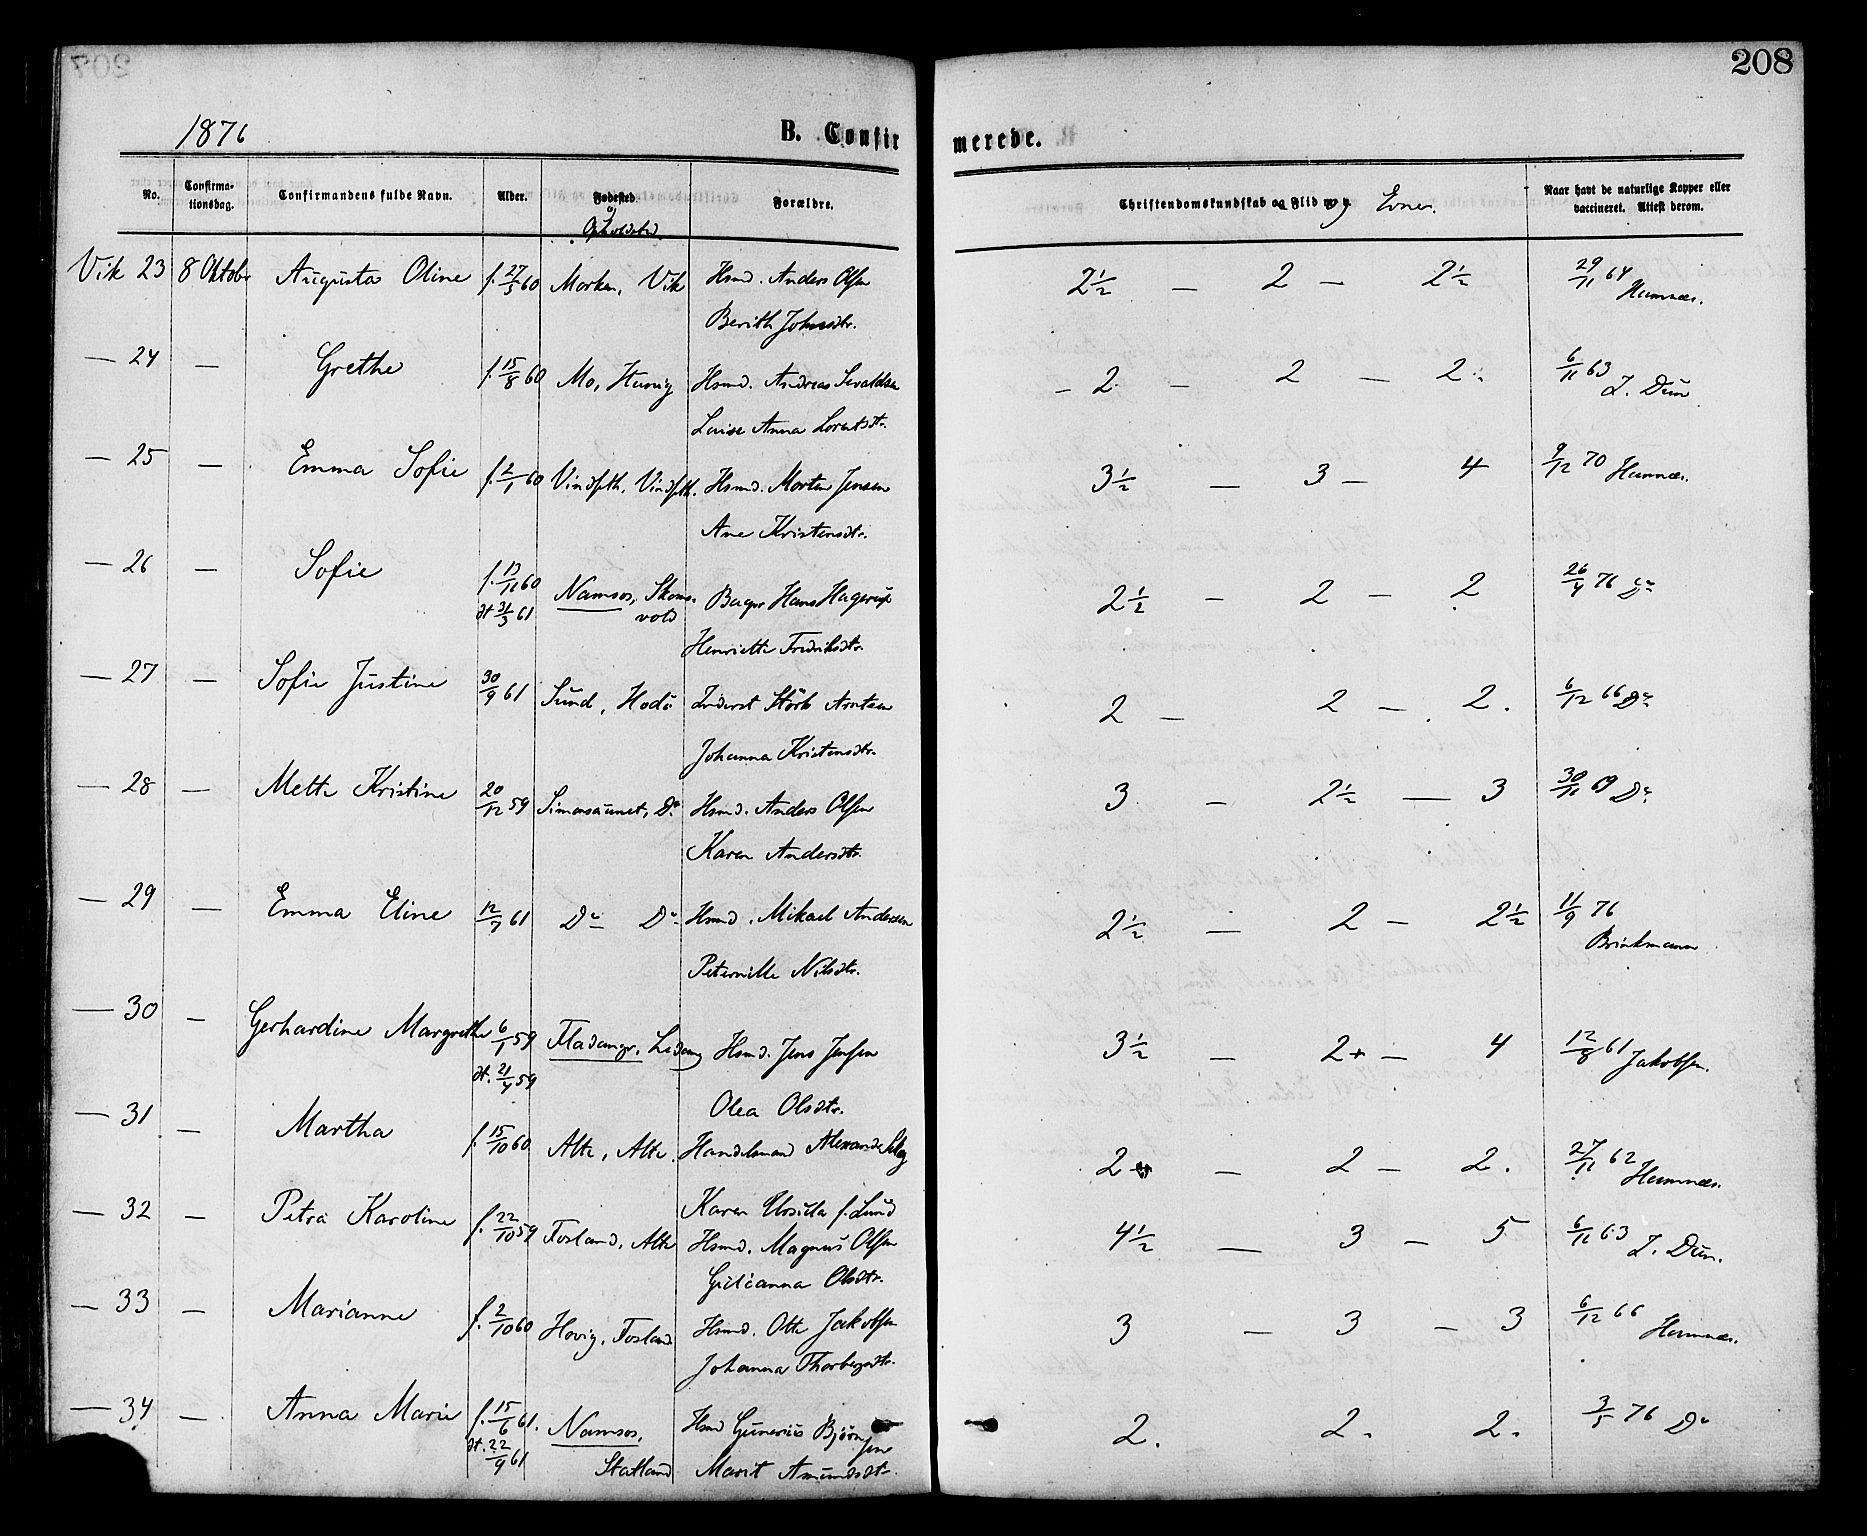 208
1876
B. Confirmerede.
No. Confirmationsdag. Confirmandens fulde Navn. Alder. Fødested & Opholdsted Forældre. Christendomskundskab og Flid og Evner. Naar havt de naturlige Kopper eller vaccineret. Attest derom.
Vik 23 8 Oktobr Augusta Oline f. 27/5 60 Morken, Vik Hsmd. Anders Olsen 2½ — 2 — 2½ 29/11 64 Hemnæs.
Berith Johnsdtr.
— 24 — Grethe f. 15/8 60 Mo, Hunig Hsmd. Andreas Sivaldsen — 2 — 2 — 2. 6/11 63 J. Dün
Louise Anna Lorntsdtr.
— 25 — Emma Sofie f. 2/1 60 Vindspth. Vindspth. Hsmd. Morten Jensen 3½ — 3 — 4 9/12 70 Hemnæs.
Ane Kristensdtr.
— 26 — Sofie f. 13/11 60 Namsos, Skomsvold Hans Hagerup 2½ — 2 — 2 26/4 76 Do
dt 31/3 61
Henriette Fredriksdtr.
— 27 — Sofie Justine 30/9 61 Sund, Hodö Inderst Störk Arntsen 2 — 2 — 2. 6/12 66 Do
Johanna Kristensdtr.
— 28 — Mette Kristine 20/12 59 Simonsaunet, Do Hsmd. Anders Olsen 3 — 2½ — 3 30/11 69 Do
Karen Andersdtr.
— 29 — Emma Eline 12/7 61 Do Do Hsmd. Mikael Andersen 2½ — 2 — 2½ 11/9 76 Brinkmann
Peternille Nilsdtr.
— 30 — Gerhardine Margrethe 6/1 59 Fladangr. Ledang Hsmd. Jens Jensen 3½ — 2+ — 4 12/8 61 Jakobsen.
dt. 21/4 59
Olea Olsdtr.
— 31 — Martha f. 15/10 60 Alte, Alte. Handelsmand Alexander 2+ — 2 — 2. 27/11 62 Hemnæs.
Karen Ursilla f. Lund
— 32 — Petra Karoline f. 22/10 59 Fosland, Alte Hsmd. Magnus Olsen 4½ — 3 — 5 6/11 63 J. Dün.
Gidianna Olsdtr.
— 33 — Marianne f. 2/10 60 Hovig, Fosland Hsmd. Otte Jakobsen 3 — 3 — 3 6/12 66 Hemnæs.
Johanna Thorbergsdtr.
— 34 — Anna Marie f. 15/6 61. Namsos, Hsmd Gunerius Bjørnsen 2. 2. 2. 3/5 76 Do
dt. 22/9 61
Statland Marit Amundsdtr.